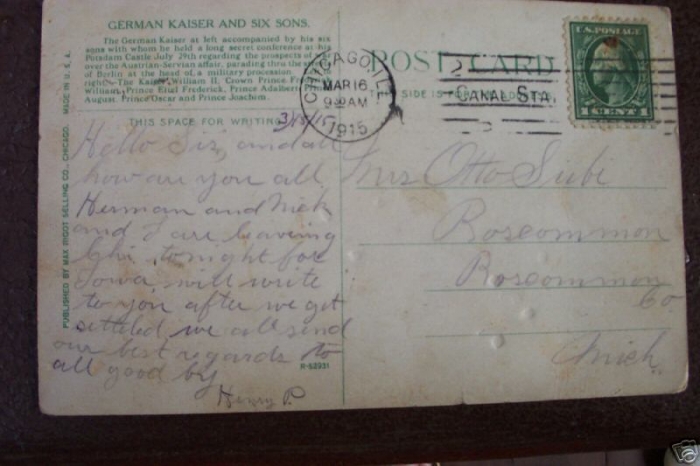 GERMAN KAISER AND SIX SONS.
The German Kaiser at left accompanied by his six
sons with whom he held a long secret conference at his
Potsdam Castle July 29th regarding the prospects of w
over the Austrian-Servian affair, parading thru the
of Berlin at the head of a military procession
right—The Kaiser William II, Crown Prince Fr
William, Prince Eitel Frederick, Prince Adalbert
August, Prince Oscar and Prince Joachim.
THIS SPACE FOR WRITING
3/15/15
Hello Sis, and all
how are you all
Herman and Nick
and I are leaving
Chi. tonight for
Iowa, will write
to you after we get
settled we all send
our best regards to
all good by
Henry P.
R-52931
PUBLISHED BY MAX RIGOT SELLING CO., CHICAGO. MADE IN U.S.A.
POST CARD
THIS SIDE IS FOR
CHICAGO, ILL.
MAR 16
9 30 AM
1915
2
CANAL STA.
U.S. POSTAGE
1 CENT 1
Mrs Otto Subi
Roscommon
Roscommon
Co.
Mich